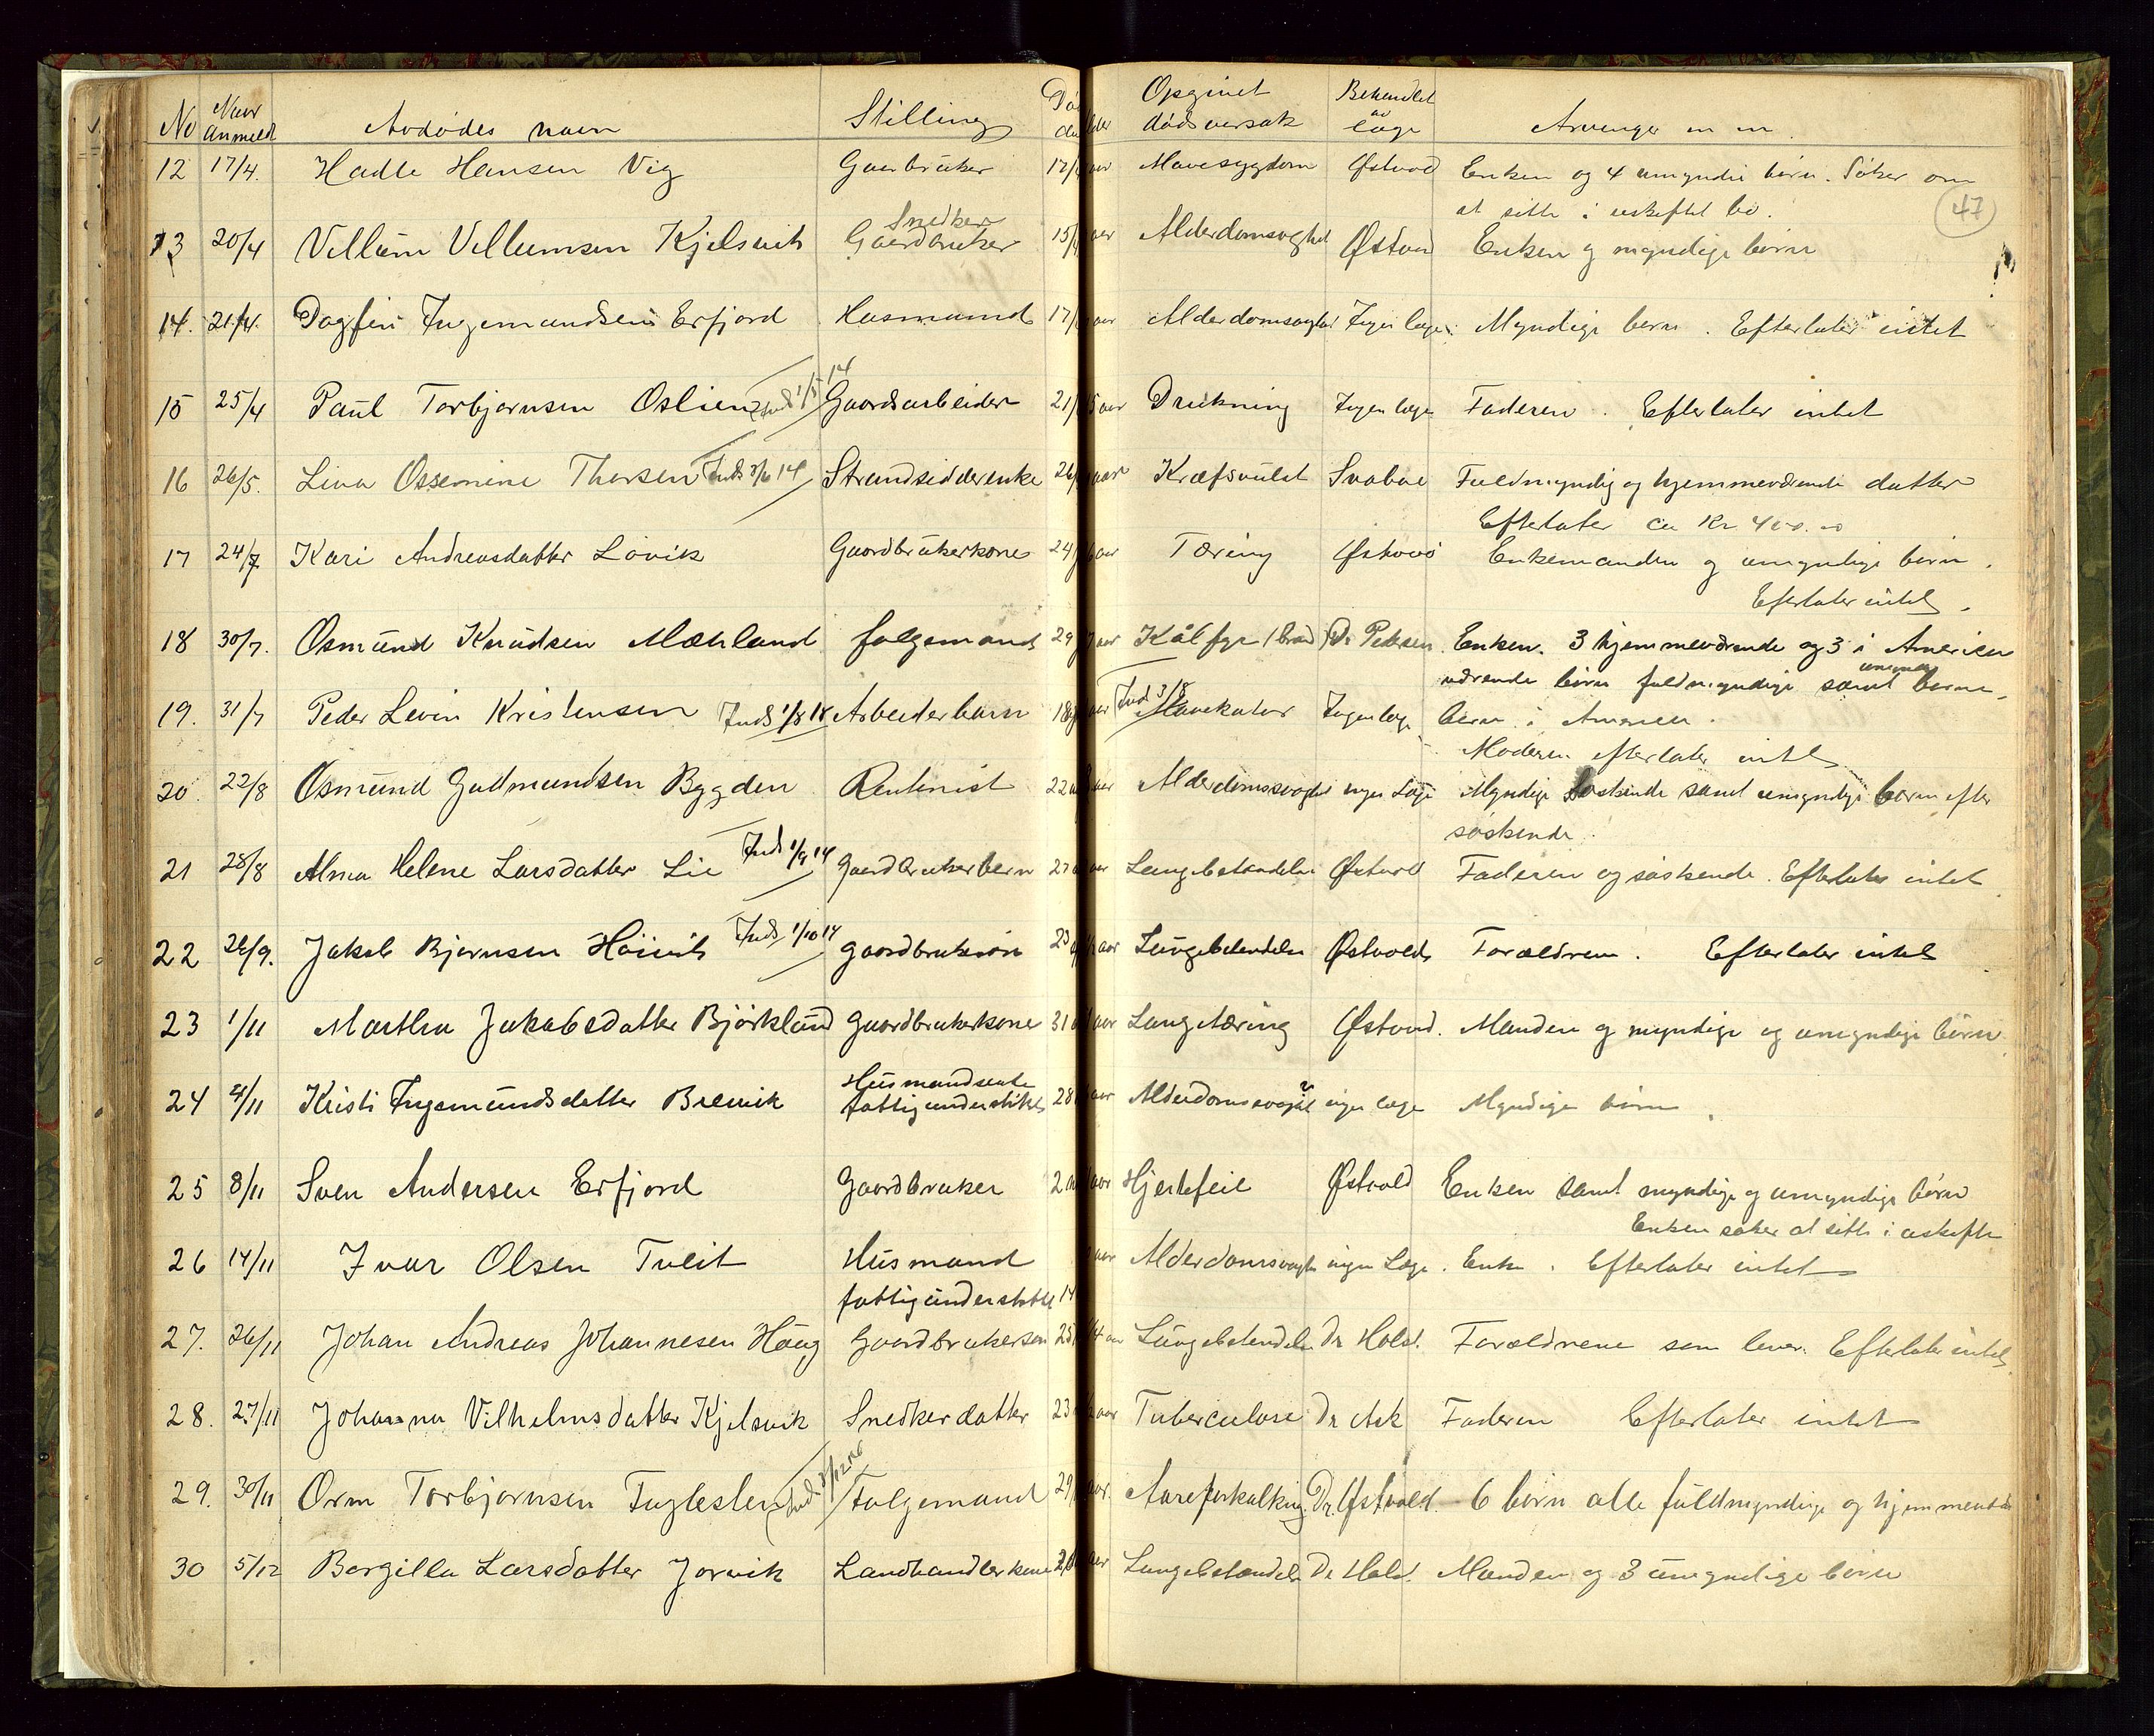 No Naar anmeldt Avdødes navn Stilling Opgivet dødsaarsak Behandlet av læge Arvinger m m.
47
12 17/4. Hadle Hansen Vig Gaarbruker 12/ aar Mavesygdom Østvold Enken og 4 umyndie børn. Søker om
at sitte i uskiftet bo.
13 20/4 Villum Villumsen Kjølsvik Snedker Gaardbruker 15/ aar Alderdomsvaghet Østvold Enken og myndige børn
14. 21/4. Dagfin Ingemundsen Erfjord Husmand 17/ aar Alderdomsvaghet Ingen læge. Myndige børn. Efterlater intet
15 25/4 Paul Torbjørnsen Oslien Inds 1/5 14 Gaardsarbeider 21/ aar Drukning Ingen læge Faderen. Efterlater intet
16 26/5. Lina Ossemine Thorsen Inds 3/6 14 Strandsidderenke 26/ aar Kræfsvulst Svaboe Fuldmyndig og hjemmeværende datter
Efterlater ca Kr 400.00
17 24/7 Kari Andreasdatter Løvik Gaardbrukerkone 24 aar Tæring Østvold Enkemanden og umyndige børn.
Efterlater intet.
18 30/7. Osmund Knudsen Mæhland folgemand 29 aar Kålfyr (brand) Dr Pedersen Enken. 3 hjemmeværende og 3 i Amerika
værende børn fuldmyndige samt umyn. børne-
børn i Amerika.
19. 31/7 Peder Levin Kristensen Inds 1/8 14 Arbeiderbarn 18 aar Inds 3/8 Mavekatar Ingen læge
Moderen efterlater intet
20. 22/8 Osmund Gudmundsen Bygden Rentenist 22 aar Alderdomssvaghet ingen Læge Myndige søskende samt umyndige børn efter
søskende.
21 28/8 Alma Helene Larsdatter Lie Inds 1/9 14 Gaardbrukerbarn 27 aar Lungebetændelse Østvold Faderen og søskende. Efterlater intet
22 26/9. Jakob Bjørnsen Høivik Inds 1/10 14 gaardbruksøn 23 aar Lungebetendelse Østvold Forældrene. Efterlater intet
23 1/11 Martha Jakobsdatter Björklund gaardbrukerkone 31 aar Lungetæring Østvold. Manden og myndige og umyndige børn
24 4/11 Kristi Ingemundsdatter Brevik Husmandsenke fattigunderstøttet 28 aar Alderdomssvaghet ingen læge Myndige børn.
25 8/11 Sven Andersen Erfjord Gaardbruker 2 aar Hjertefeil Østvold Enken samt myndige og umyndige børn
Enken søker at sitte i uskifte
26 14/11 Ivar Olsen Tveit Husmand fattigunderstøttet 14 aar Alderdomsvaghet ingen Læge. Enke. Efterlater intet
27. 26/11 Johan Andreas Johannesen Haug Gaardbrukersøn 25 aar Lungebetendelse Dr Holst. Forældrene som lever. Efterlater intet
28. 27/11 Johanna Vilhelmsdatter Kjølsvik Snedkerdatter 23 aar Tuberculose Dr Ask Faderen Efterlater intet
29. 30/11 Orm Torbjørnsen Fuglesten Inds Folgemand 29 aar. Aareforkalkning Dr. Østvold. 6 børn alle fuldmyndige og hjemmeværende
30 5/12 Bergilla Larsdatter Jorvik Landhandlerkone 2 aar Lungebetændelse Dr Holst. Manden og 3 umyndige børn